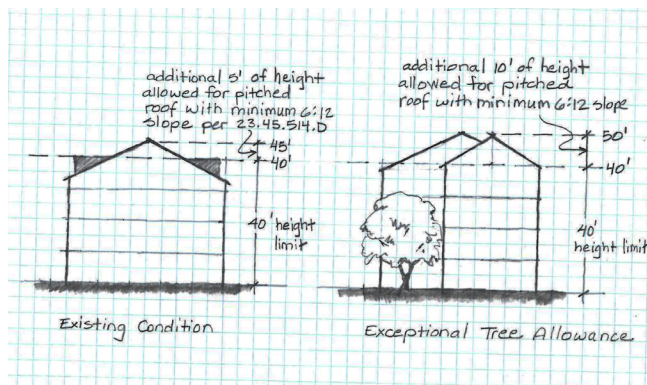 additional 5' of height
allowed for pitched
roof with minimum 6:12
slope per 23.45.514.D
45'
40'
40' height
limit
Existing Condition
additional 10' of height
allowed for pitched
roof with minimum 6:12 slope
50'
40'
40'
height limit
Exceptional Tree Allowance